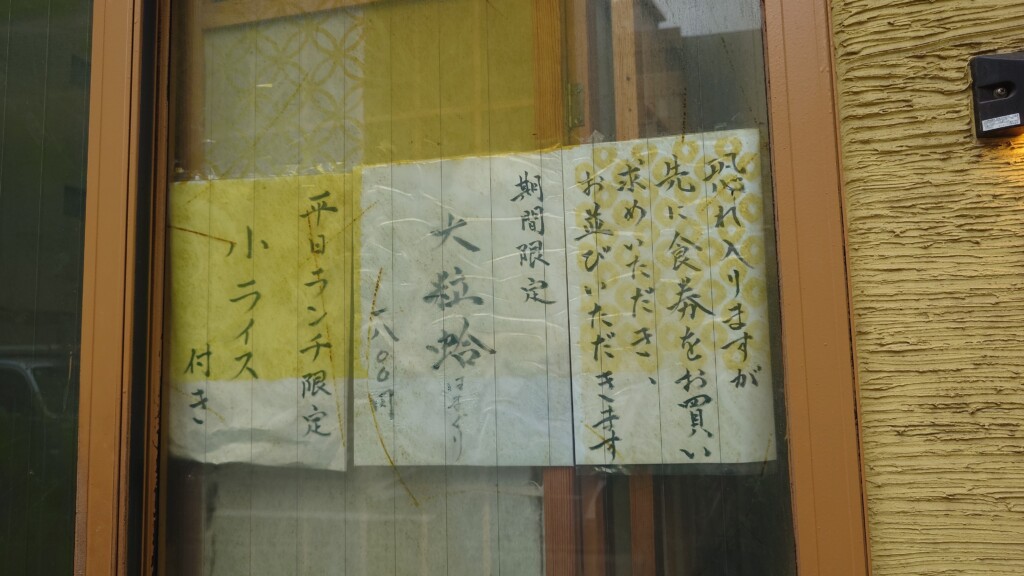 恐れ入りますが
先に食券をお買い
求めいただき、
お並びいただきます
期間限定
大粒蛤はまぐり
一八〇〇円
平日ランチ限定
小ライス
付き